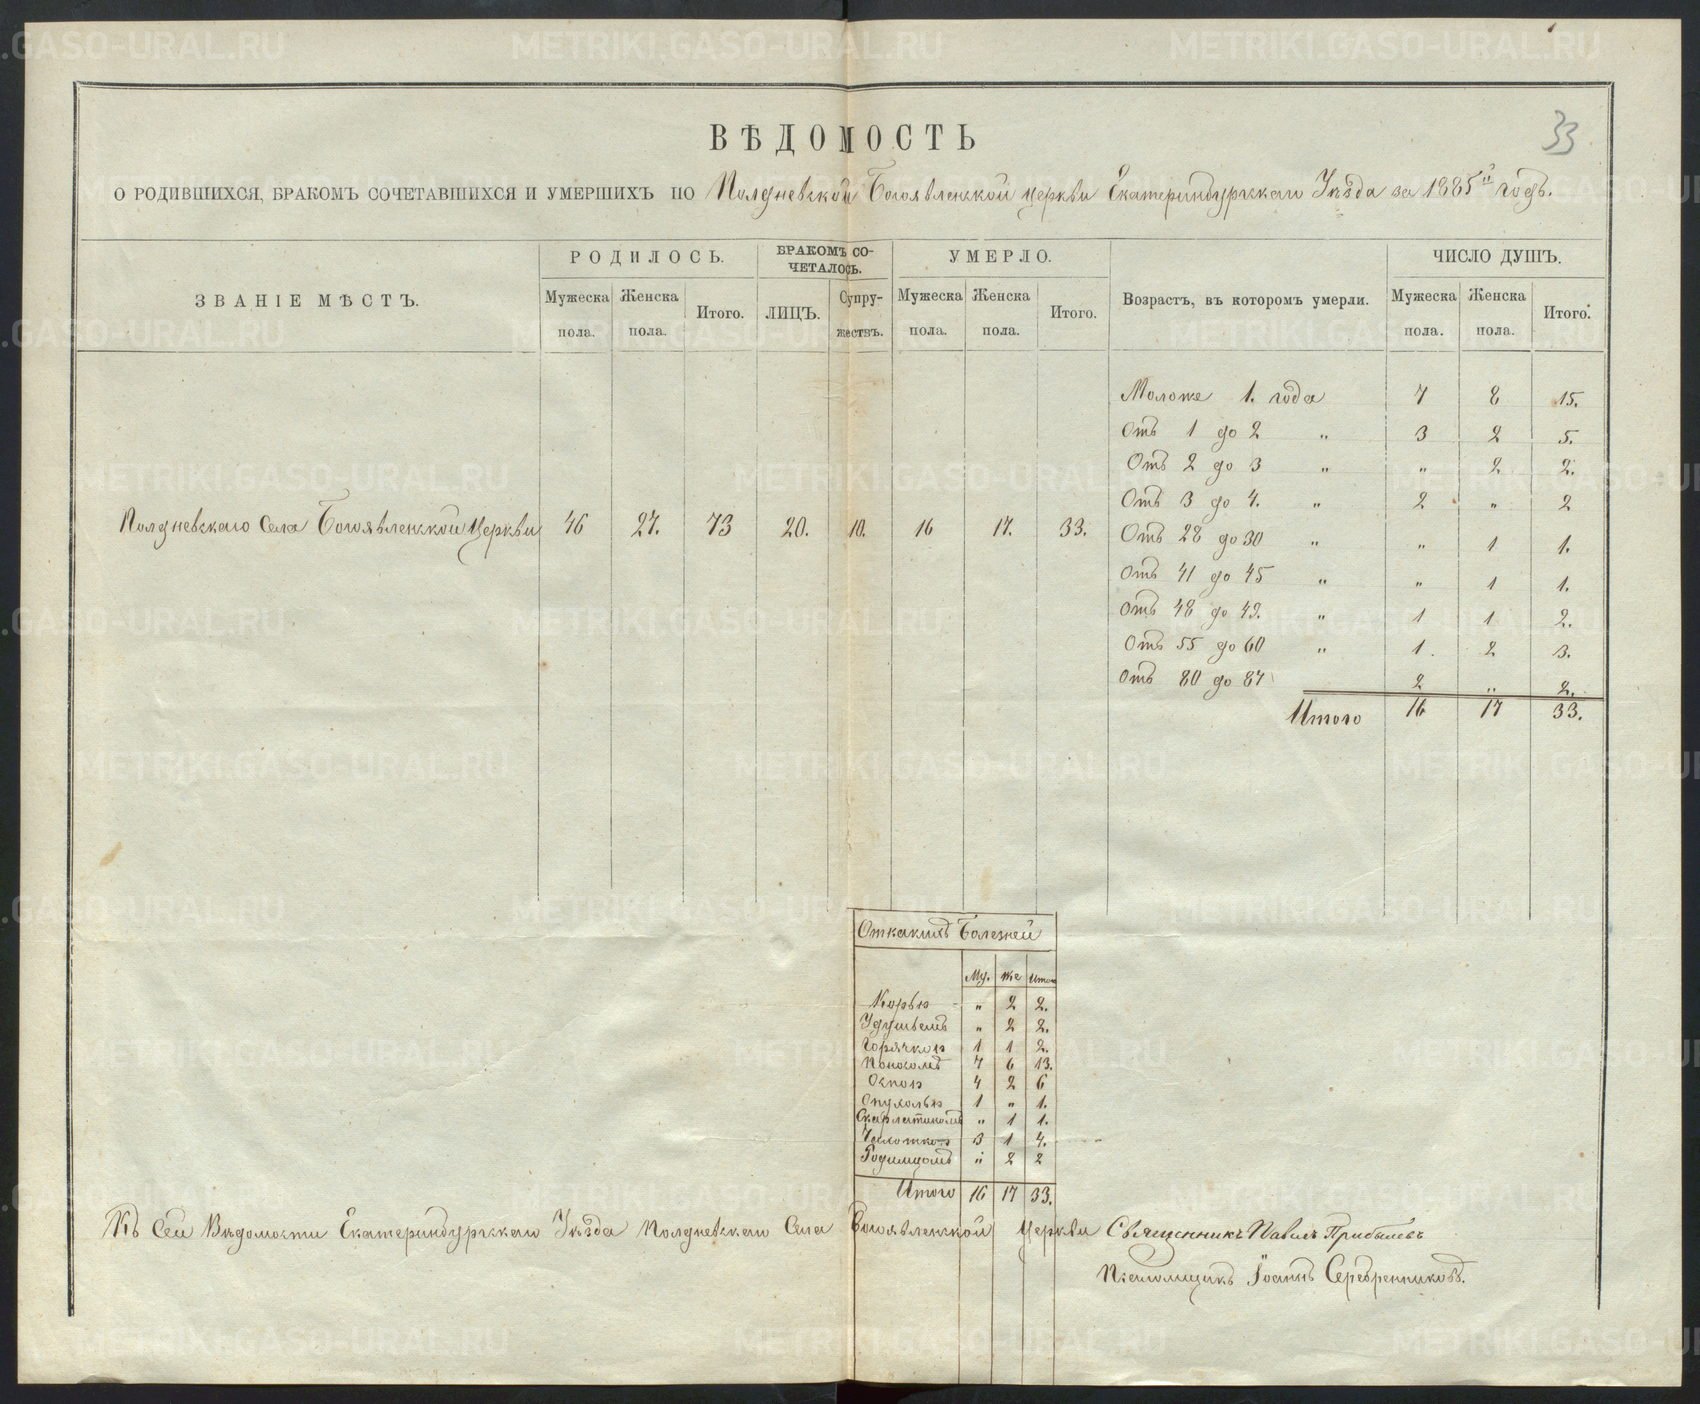 33
ВѢДОМОСТЬ
О РОДИВШИХСЯ, БРАКОМЪ СОЧЕТАВШИХСЯ И УМЕРШИХЪ ПО Полдневской Богоявленской церкви Екатеринбургскаго Уѣзда за 1885й годъ.
ЗВАНІЕ МѢСТЪ. РОДИЛОСЬ. БРАКОМЪ СО-ЧЕТАЛОСЬ. УМЕРЛО. Возрастъ, въ которомъ умерли. ЧИСЛО ДУШЪ.
Мужеска пола. Женска пола. Итого. ЛИЦЪ. Супру-жествъ. Мужеска пола. Женска пола. Итого. Мужеска пола. Женска пола. Итого.
Полдневскаго Села Богоявленской Церкви 46 27. 73 20. 10. 16 17. 33.
Моложе 1. года 7 8 15.
Отъ 1 до 2 " 3 2 5.
Отъ 2 до 3 " " 2 2.
Отъ 3 до 4. " 2 " 2
Отъ 28 до 30 " " 1 1.
Отъ 41 до 45 " " 1 1.
Отъ 48 до 49. " 1 1 2.
Отъ 55 до 60 " 1. 2 3.
Отъ 80 до 87 2 " 2.
Итого 16 17 33.
Откакихъ Болезней
Му. Же Итого
Корью " 2 2.
Удушьемъ " 2 2.
Горячкою 1 1 2.
Поносомъ 7 6 13.
Оспою 4 2 6
Опухолью 1 " 1.
Скарлатиномъ " 1 1.
Чахоткою 3 1 4.
Родимцомъ " 2 2
Итого 16 17 33.
Къ Сей Вѣдомости Екатеринбургскаго Уѣзда Полдневскаго Села Богоявленской Церкви Священникъ Павелъ Прибылевъ
Псаломщикъ Іоаннъ Серебренниковъ.
METRIKI.GASO-URAL.RU